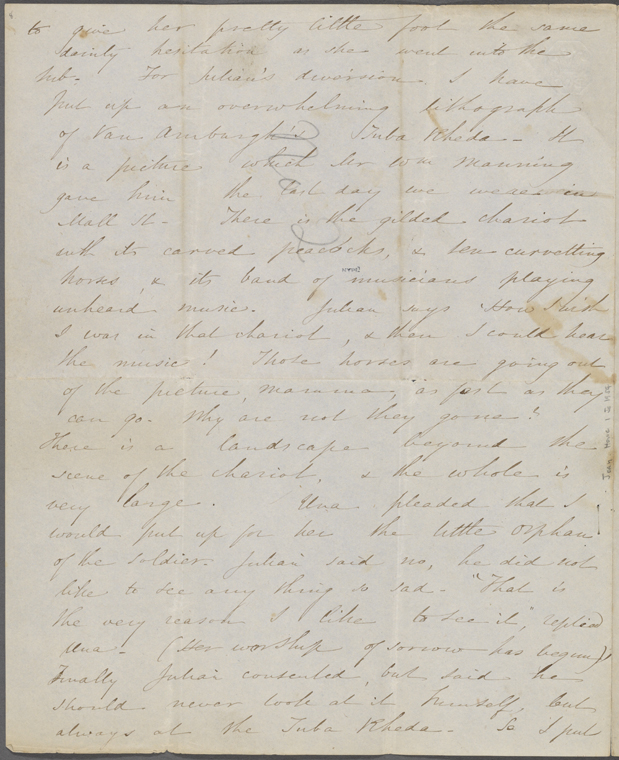 to give her pretty little foot the same
dainty hesitation as she went into the
tub. For Julian's diversion I have
put up an overwhelming lithograph
of Van Amburgh's Tuba Rheda - It
is a picture which Mr Wm Manning
gave him the last day we were in
Mall St - There is the gilded chariot
with its carved peacocks, & ten curvetting
horses, & its band of musicians playing
unheard music. Julian says "How I wish
I was in that chariot, & then I could hear
the music! Those horses are going out
of the picture, mamma, as fast as they
can go. Why are not they gone?"
There is a landscape beyond the
scene of the chariot, & the whole is
very large. Una pleaded that I
would put up for her the little orphan
of the soldier. Julian said no, he did not
like to see any thing so sad - "That is
the very reason I like to see it", replied
Una - (Her worship of sorrow has begun)!
Finally Julian consented, but said he
should never look at it himself, but
always at the Tuba Rheda - So I put